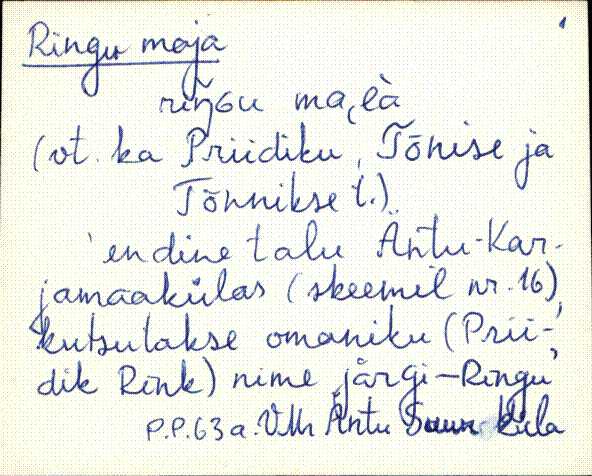 Ringu maja
riŋ̆Gu ma,i̯à
(vt. ka Priidiku, Tõnise ja
Tõnnikse t.)
endine talu Äntu-Kar-
jamaakülas (skeemil nr. 16),
kutsutakse omaniku (Prii-
dik Rink) nime järgi – Ringu
P.P. 63 a. VMr Äntu Suurküla